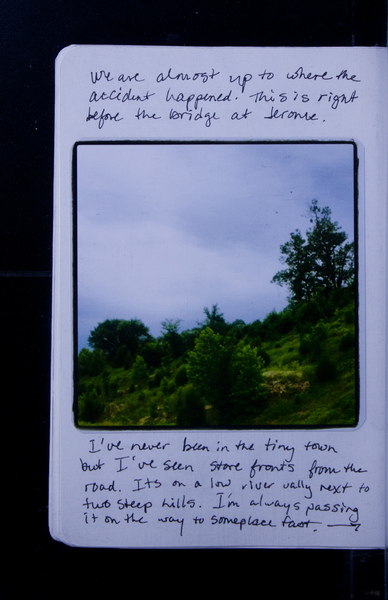 We are almost up to where the
accident happened. This is right
before the bridge at Jerome.
I've never been in the tiny town
but I've seen store fronts from the
road. Its on a low river vally next to
two steep hills. I'm always passing
it on the way to someplace fast.